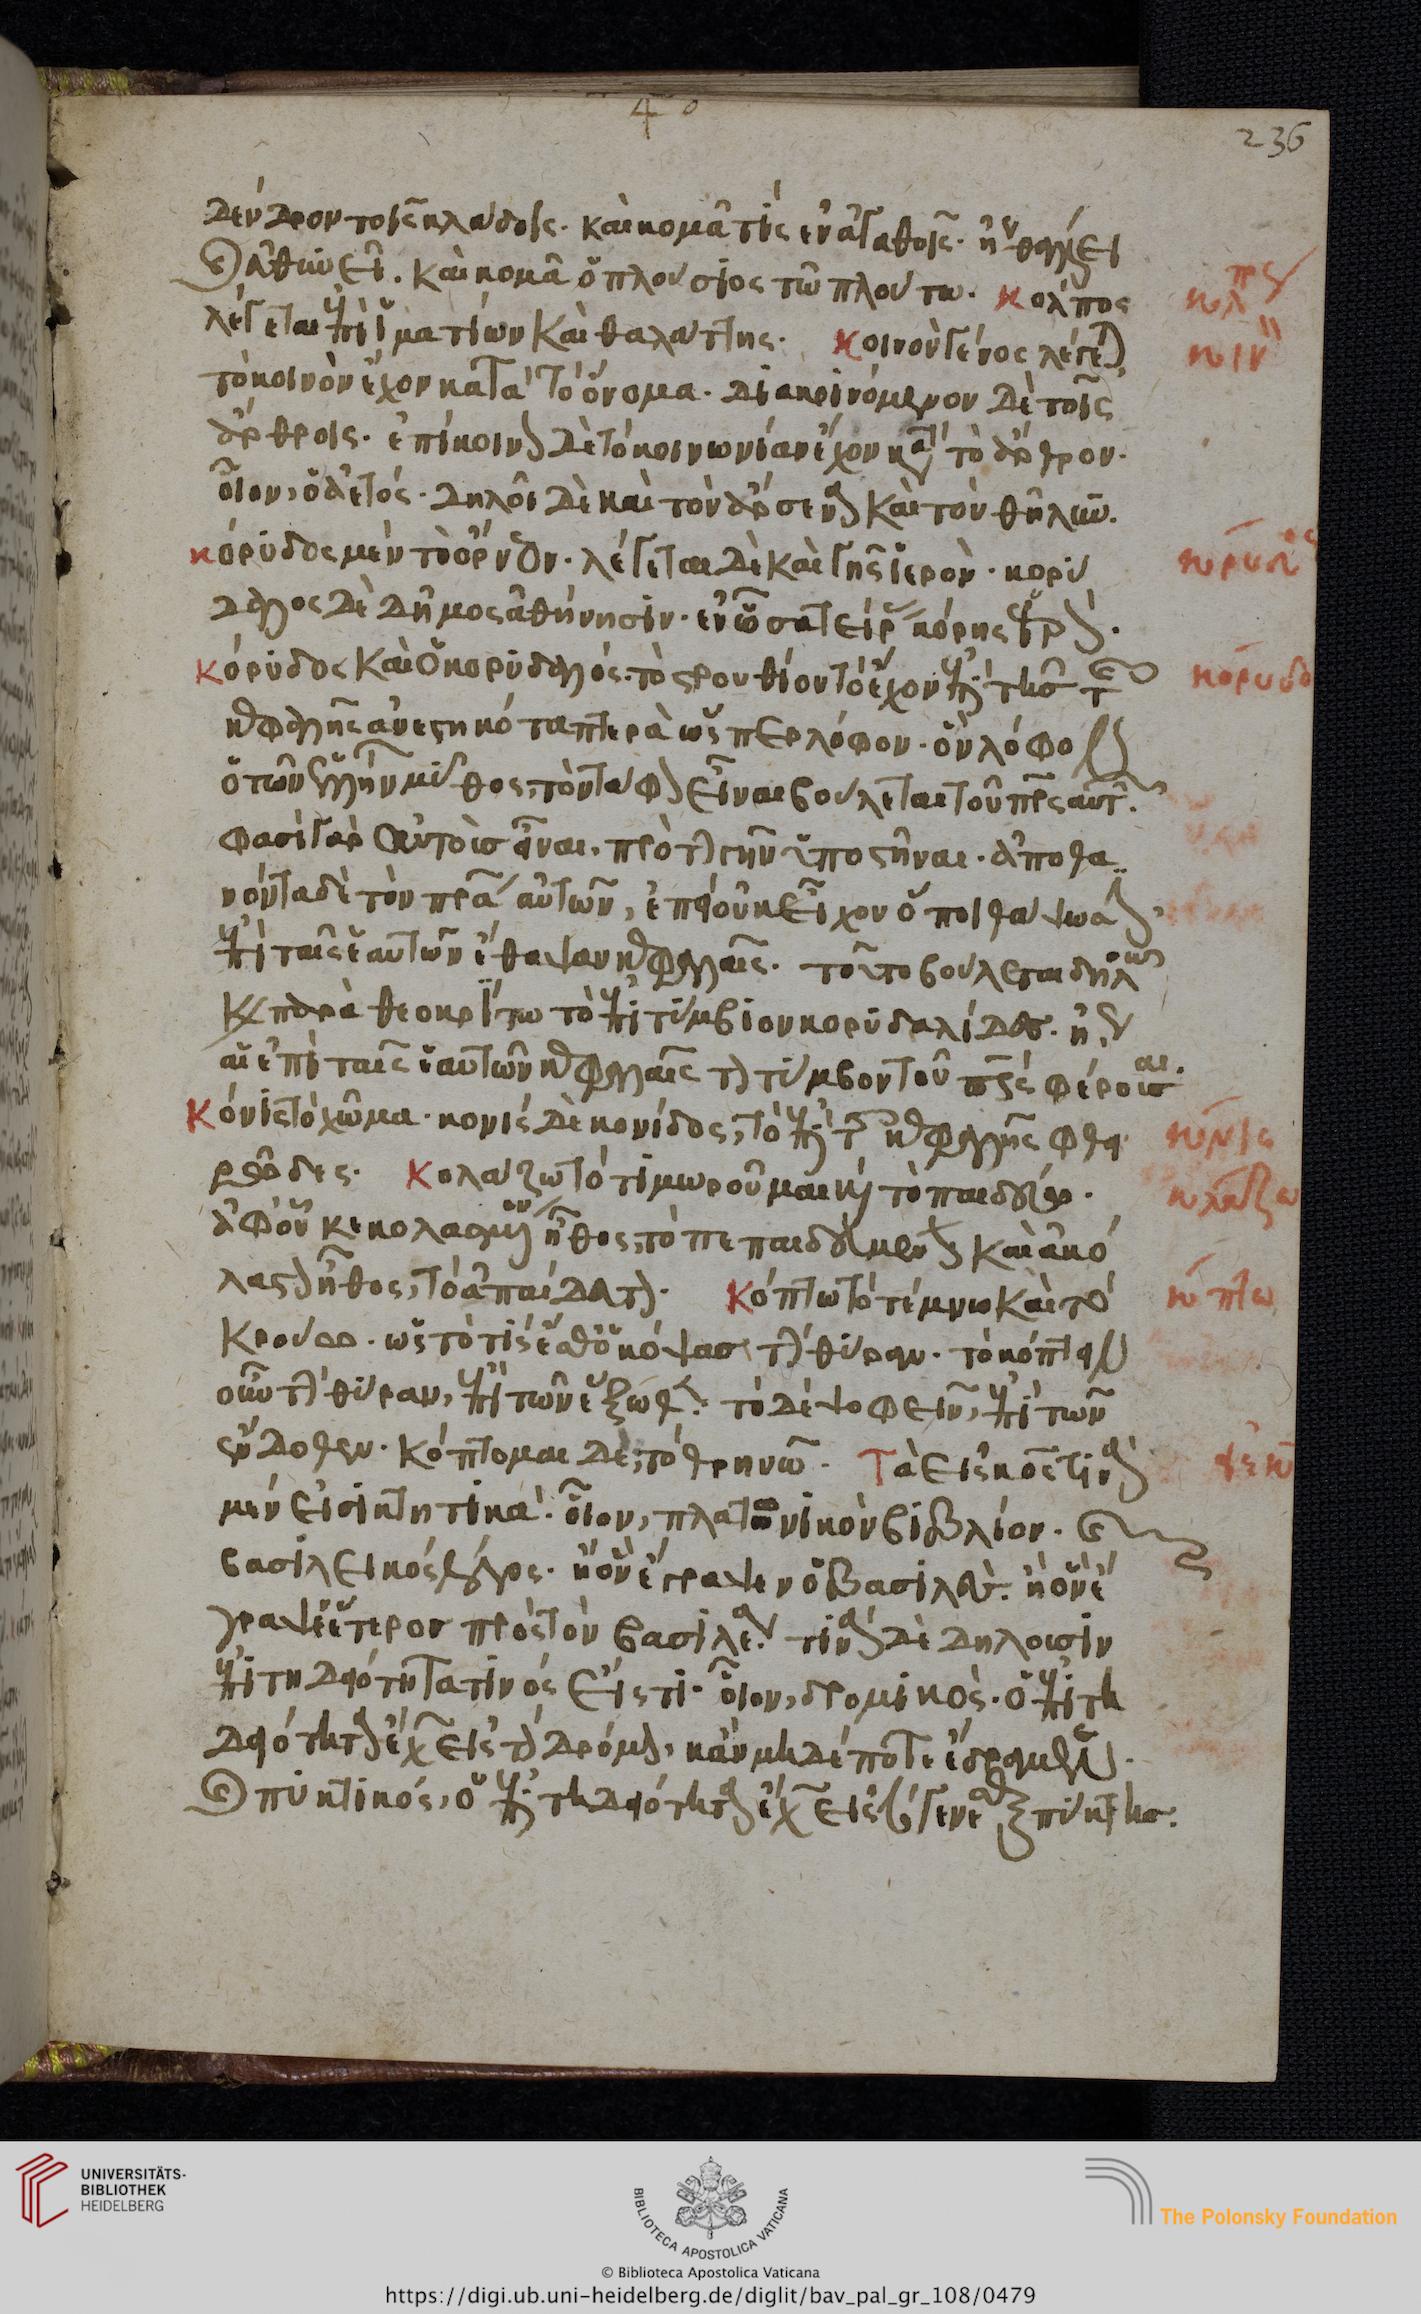 4º
236
δένδρον τοῖς κλάδοις. καὶ κομᾶ τίς ἐν ἀγαθοῖς. ἢν θάλλει
ἀνθεῖ. καὶ κομᾶ ὁ πλούσιος τῶ πλούτω. κόλπος
λέγεται ἐπὶ ἱματίων καὶ θαλάττης. κοινὸν γένος λέγεται
τὸ κοινὸν ἔχον κατὰ τὸ ὄνομα. διακρινόμενον δὲ τοῖς
ἄρθροις. ἐπίκοινον δὲ τὸ κοινωνίαν ἔχον κατὰ τὸ ἄρθρον.
οἷον, ὁ ἀετός. δηλοῖ δὲ καὶ τὸν ἄρσενα καὶ τὸν θῆλυν.
κόρυδος μὲν τὸ ὄρνεον. λέγεται δὲ καὶ γῆς ἱερὸν. κορυ
δαλος δὲ δῆμος ἀθήνησιν. ἐν ὧ σωτείρας κόρης ἱερόν.
κόρυδος καὶ ὁ κορυδαλός. τὸ στρουθίον τὸ ἔχον ἐπὶ τῆς
κεφαλῆς ἀνεστηκότα πτερὰ ὥσπερ λόφον. ὃν λόφον
ὁ τῶν ἑλλήνων μῦθος, τὸν τάφον εἶναι βούλεται τοῦ πατρὸς αὐτῶν.
φασὶ γὰρ αὐτοὺς εἶναι, πρὸ τὴν γῆν ὑποστῆναι. ἀποθα
νόντα δὲ τὸν πατέρα αὐτῶν, ἐπεὶ οὐκ εἶχον ὅποι θάψωσιν,
ἐπὶ ταῖς ἑαυτῶν ἔθαψαν κεφαλαῖς. τοῦτο βούλεται δηλοῦν
καὶ παρὰ θεοκρίτω τὸ ἐπιτυμβίον κορυδαλίδες. ἤγουν
αἱ ἐπὶ ταῖς ἑαυτῶν κεφαλαῖς τὸν τύμβον τοῦ πατρὸς φέρουσαι.
Κόνις τὸ χῶμα. κονὶς δὲ κονίδος, τὸ ἐπὶ τῆς κεφαλῆς φθει
ρῶδες. Κολάζω τὸ τιμωροῦμαι καὶ τὸ παιδεύω.
ἀφ' οὗ κεκολασμένον ἦθος, τὸ πεπαιδευμένον καὶ ἀκό
λαστον ἦθος, τὸ ἀπαίδευτον. Κόπτω τὸ τέμνω καὶ τὸ
κρούω. ὡς τὸ τίς ἔσθ' ὁ κόψας τὴν θύραν. τὸ κόπτειν
οὖν τὴν θύραν, ἐπὶ τῶν ἔξωθεν. τὸ δὲ ψοφεῖν, ἐπὶ τῶν
ἔνδοθεν. κόπτομαι δὲ, τὸ θρηνῶ. Τὰ εἰς κος τινὰ
μέν εἰσι κτητικά. οἷον, πλατωνικὸν βιβλίον.
βασιλεικὸς λόγος. ἢ ὃν ἔγραψεν ὁ βασιλεὺς. ἢ ὃν ἔ
γραψεν ἕτερος πρὸς τὸν βασιλέα. τινὰ δὲ δηλοῦσιν
ἐπιτηδειότητα τινὸς εἴς τι. οἷον, δρομικὸς. ὁ ἐπιτη
δειότητα ἔχων εἰς τὸν δρόμον, κἂν μηδέποτε ἔδραμεν.
πυκτικός, ὁ ἐπιτηδειότητα ἔχων εἰς τὸ γενέσθαι πύκτης.
κολπος
κοιν
κορυδος
κορυδο
κονις
κολαζω
κοπτω
UNIVERSITÄTS-
BIBLIOTHEK
HEIDELBERG
BIBLIOTECA APOSTOLICA VATICANA
The Polonsky Foundation
© Biblioteca Apostolica Vaticana
https://digi.ub.uni-heidelberg.de/diglit/bav_pal_gr_108/0479